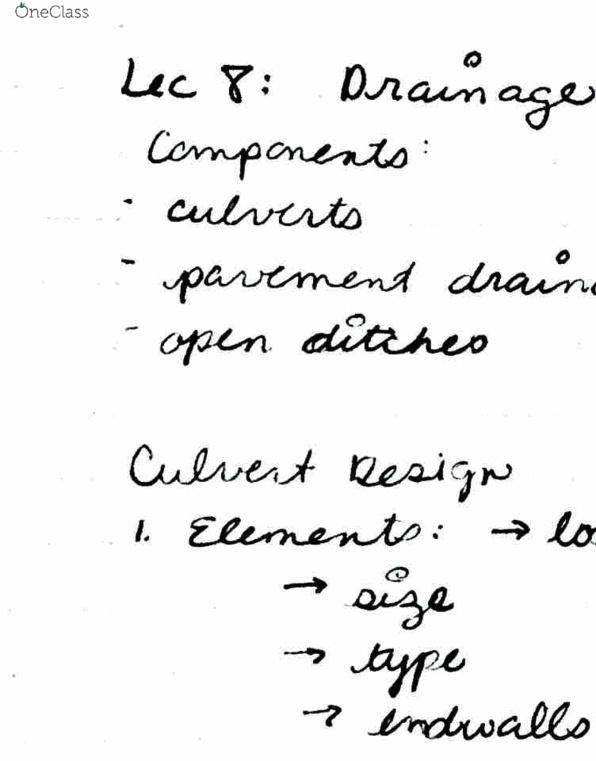 OneClass
Lec 8: Drainage
Components:
- culverts
- pavement drain
- open ditches
Culvert Design
1. Elements: → lo
→ size
→ type
→ endwalls